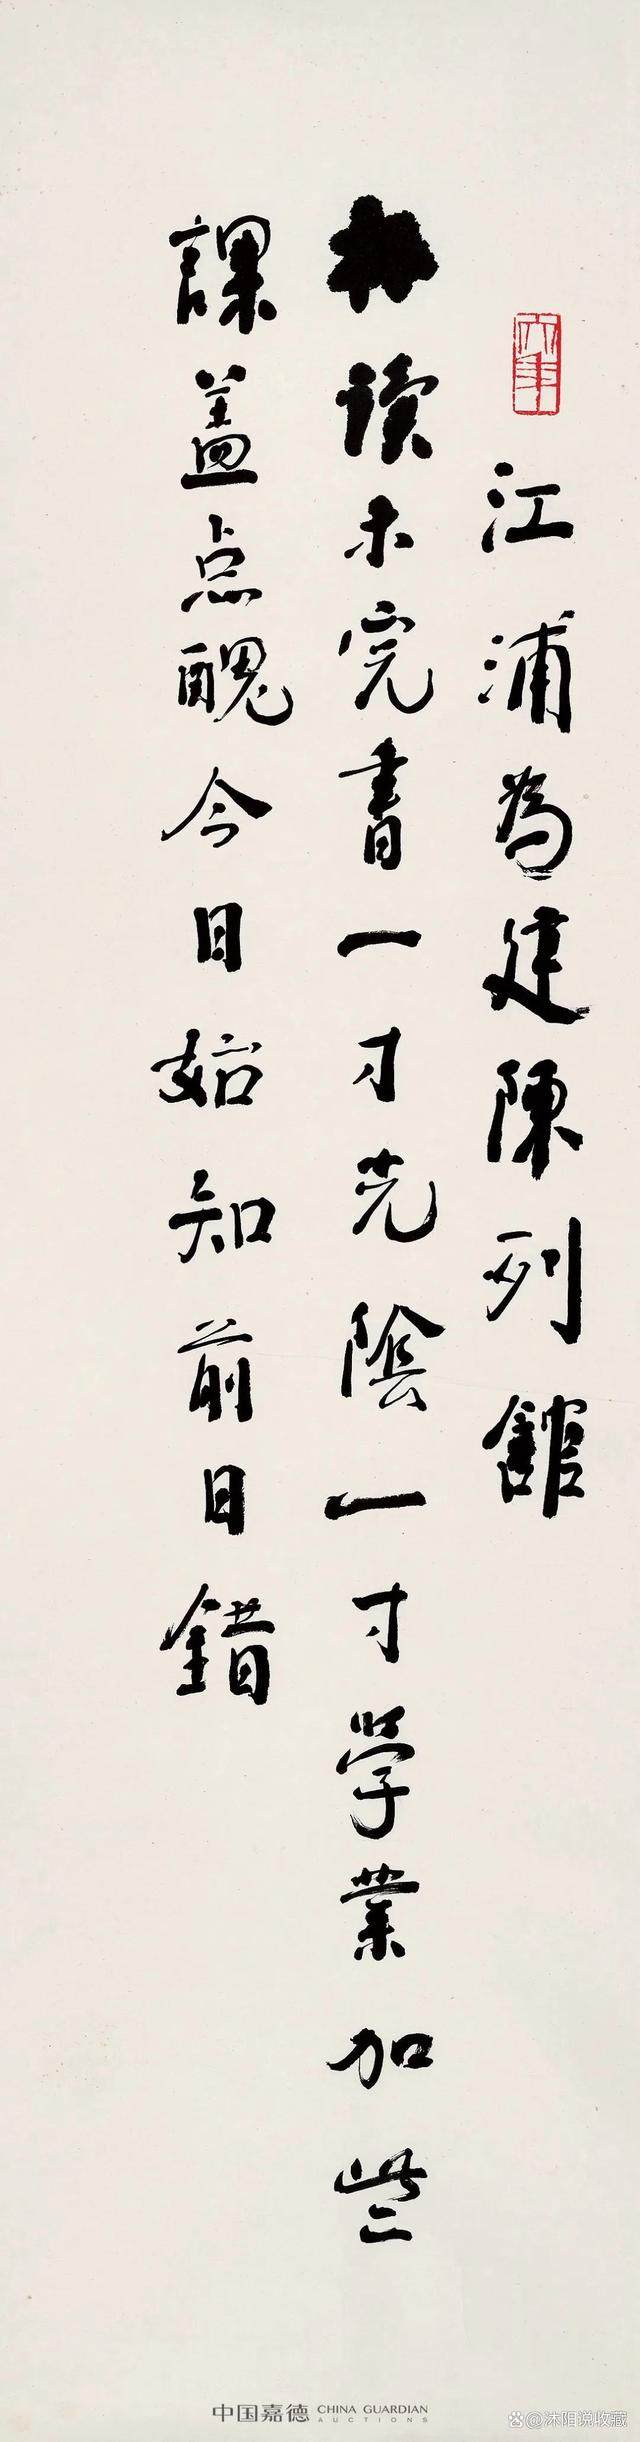 江浦為建陳列館
补读未完書一寸光陰一寸學業加些
課蓋点醜今日始知前日錯
中国嘉德 CHINA GUARDIAN
AUCTIONS
@沐阳说收藏